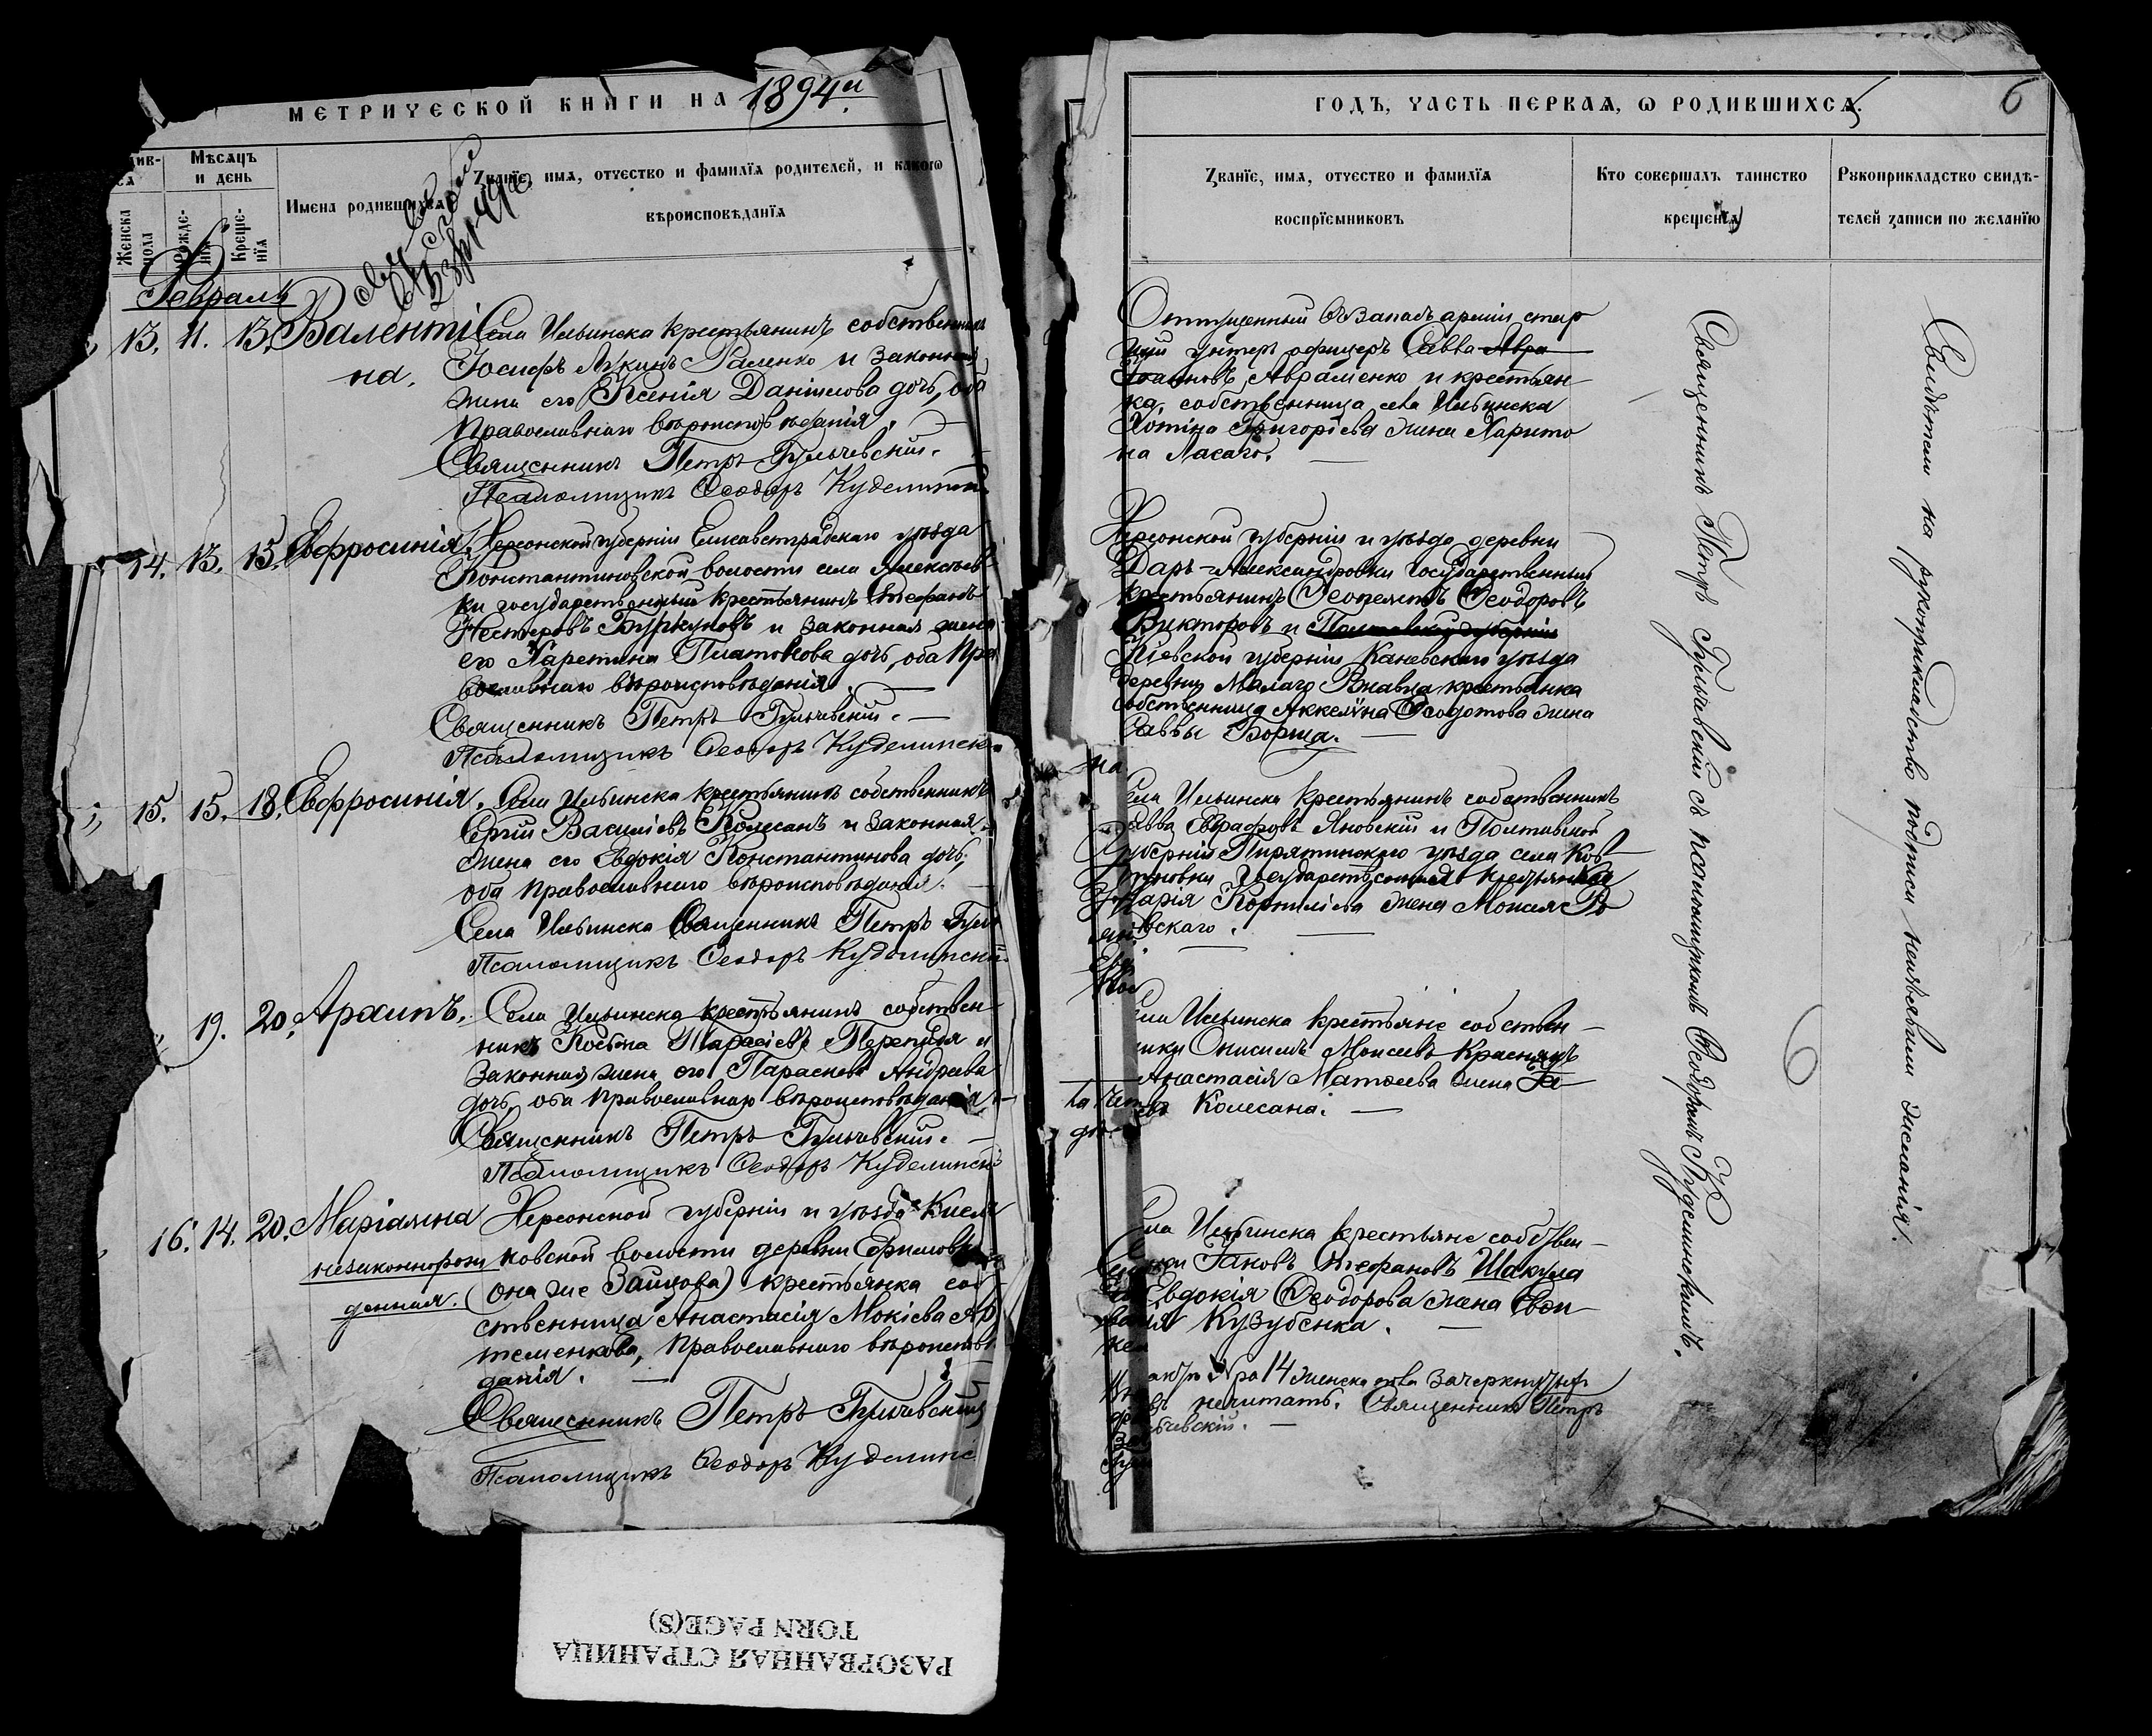 МЕТРИЧЕСКОЙ КНИГИ НА 1894й
Мѣсяцъ
и день
Женска
пола
Рожде-
нія
Креще-
нія
Имена родившихся
Званїе, имя, отчество и фамилїя родителей, и какого
вѣроисповѣданїя
Февраль
13. 11. 13. Валенті
на.
Села Ильинска крестьянинъ собственникъ
Іосифъ Лукинъ Галенко и законная
жена его Ксенія Даніилова дочь, оба
православнаго вѣроисповѣданія.
Священникъ Петръ Гульчевскій.
Псаломщикъ Ѳеодоръ Куделинскі
14. 13. 15. Евфросинія.
Херсонской губерніи Елисаветградскаго уѣзда
Константиновской волости села Алексѣев-
ки государственный крестьянинъ Стефанъ
Несторовъ Буркуновъ и законная жена
его Харитина Платонова дочь, оба пра
вославнаго вѣроисповѣданія.
Священникъ Петръ Гульчевскій.
Псаломщикъ Ѳеодоръ Куделинск
15. 15. 18. Евфросинія.
Села Ильинска крестьянинъ собственникъ
Сергій Василіевъ Колесанъ и законная
жена его Евдокія Константинова дочь,
оба православнаго вѣроисповѣданія.
Села Ильинска Священникъ Петръ Гуль
Псаломщикъ Ѳеодоръ Куделинскі
19. 20. Архипъ.
Села Ильинска крестьянинъ собствен-
никъ Косьма Тарасіевъ Перепад я и
законная жена его Параскева Андреева
дочь, оба православнаго вѣроисповѣданія
Священникъ Петръ Гульчевскій.
Псаломщикъ Ѳеодоръ Куделинскі
16. 14. 20. Маріамна
незаконнорож
денная.
Херсонской губерніи и уѣзда Киселя
ковской волости деревни Ефимовки
(она же Зайцова) крестьянка соб
ственница Анастасія Мокіева Ар
теменкова, православнаго вѣроисповѣ
данія.
Священникъ Петръ Гульчевскій
Псаломщикъ Ѳеодоръ Куделинс
ГОДЪ, ЧАСТЬ ПЕРВАЯ, Ѡ РОДИВШИХСЯ.
6
Званїе, имя, отчество и фамилїя
воспрїемниковъ
Кто совершалъ таинство
крещенїя
Рукоприкладство свидѣ-
телей записи по желанїю
Отпущенный въ запасъ арміи стар
шій унтеръ офицеръ Савва Авра
Іоанновъ Авраменко и крестьян-
ка, собственница села Ильинска
Хотина Григорієва жена Харито
на Ласаго.
Херсонской губерніи и уѣзда деревни
Даръ-Александровки государственный
крестьянинъ Ѳеопемптъ Ѳеодоровъ
Викторовъ и Полтавской губерніи
Кіевской губерніи Каневскаго уѣзда
деревни Малаго Ржавца крестьянка
собственница Аккелина Ѳеодотова жена
Саввы Борща.
на
ела Ильинска крестьянинъ собственникъ
авва Евграфовъ Яновскій и Полтавской
губерніи Пирятинскаго уѣзда села Ков
туновки государственная крестьянка
Марія Корниліева жена Моисея Ра
овскаго.
ела Ильинска крестьяне собствен-
ники Онисимъ Моисеевъ Краснякъ
Анастасія Матѳеева жена Га-
Колесана.
ела Ильинска крестьяне собствен-
ники Іаковъ Стефановъ Шакула
Евдокія Ѳеодорова жена Евѳи-
мія Кузубенка.
актъ Nро 14 женска пола зачеркнутыхъ
не читать. Священникъ Петръ
ьчевскій.
Священникъ Петръ Гульчевскій съ псаломщикомъ Ѳеодоромъ Куделинскимъ.
Свидѣтели на рукоприкладство подписи неизъявили желанія.
РАЗОРВАННАЯ СТРАНИЦА
TORN PAGE(S)